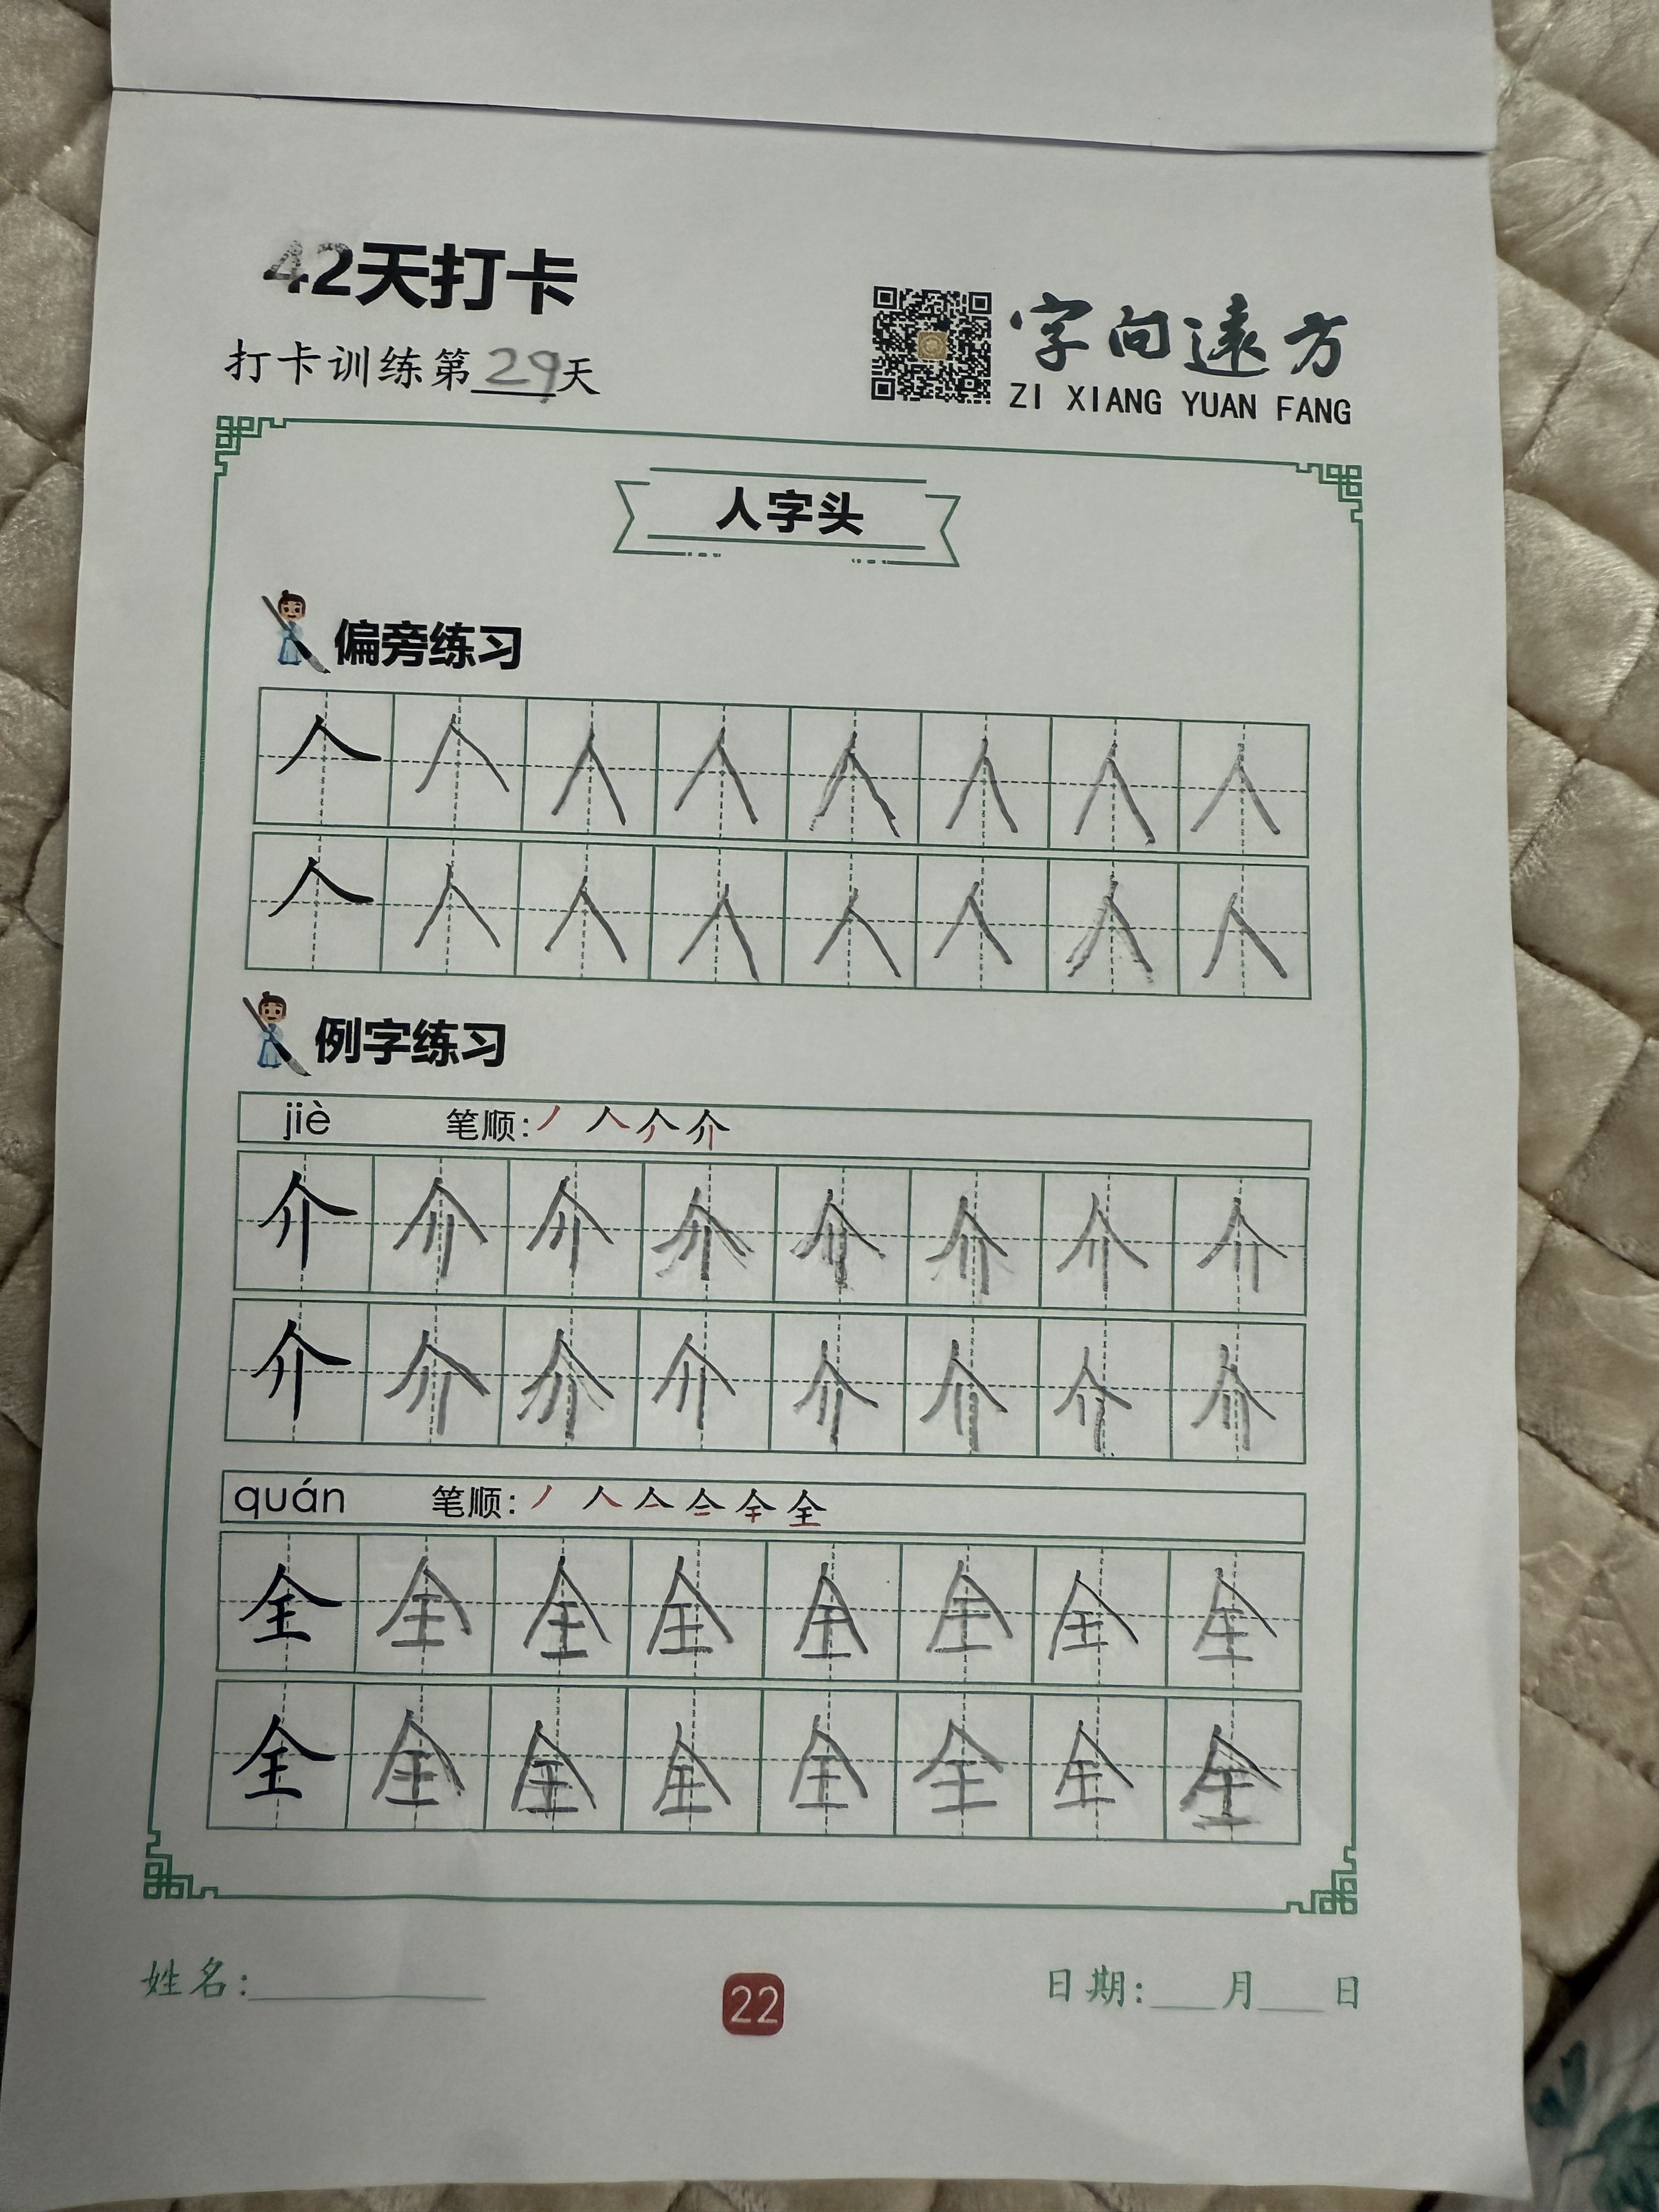 42天打卡
打卡训练第29天
字向遠方
ZI XIANG YUAN FANG
人字头
偏旁练习
人 人 人 人 人 人 人 人
人 人 人 人 人 人 人 人
例字练习
jiè 笔顺:
介 介 介 介 介 介 介 介
介 介 介 介 介 介 介 介
quán 笔顺:
全 全 全 全 全 全 全 全
全 全 全 全 全 全 全 全
姓名:
22
日期: 月 日